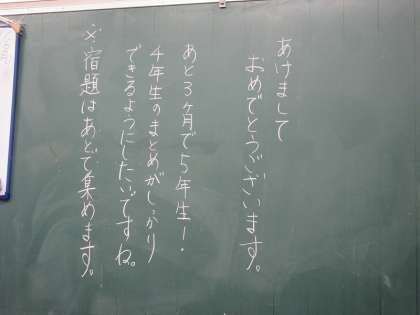 あけまして
おめでとうございます。
あと3ヶ月で5年生!
4年生のまとめがしっかり
できるようにしたいですね。
※宿題はあとで集めます。